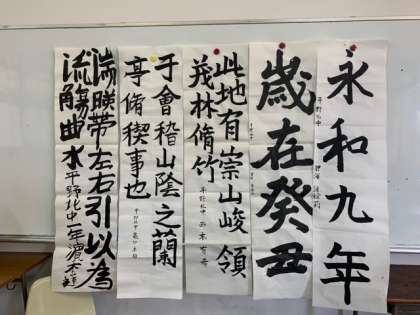 永和九年
平野北中
歳在癸丑
此地有崇山峻領
茂林脩竹
平野北中
于會稽山陰之蘭
亭脩稧事也
湍暎帯左右引以為
流觴曲水 平野北中一年